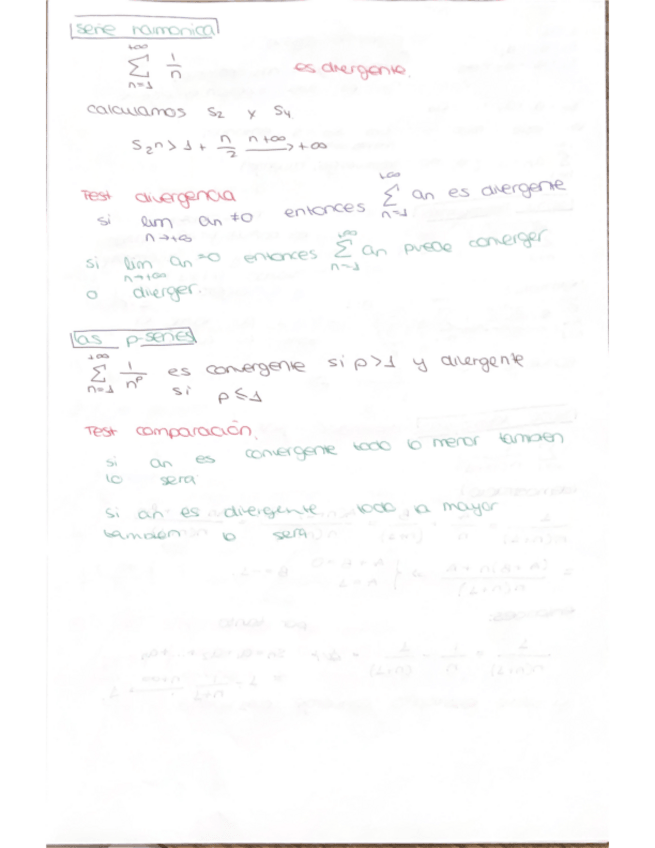 serie harmonica
+∞
∑ 1/n es divergente.
n=1
calculamos S2 y S4
S2n > 1 + n/2 n+∞→ +∞
Test divergencia
si lim an ≠0 entonces ∑ an es divergente
n→+∞ n=1
si lim an =0 entonces ∑ an puede converger
n→+∞ n=1
o diverger.
las p-series
+∞
∑ 1/n^p es convergente si p>1 y divergente
n=1 si p≤1
Test comparación.
si an es convergente todo lo menor tambien
lo sera
si an es divergente todo lo mayor
tambien lo sera